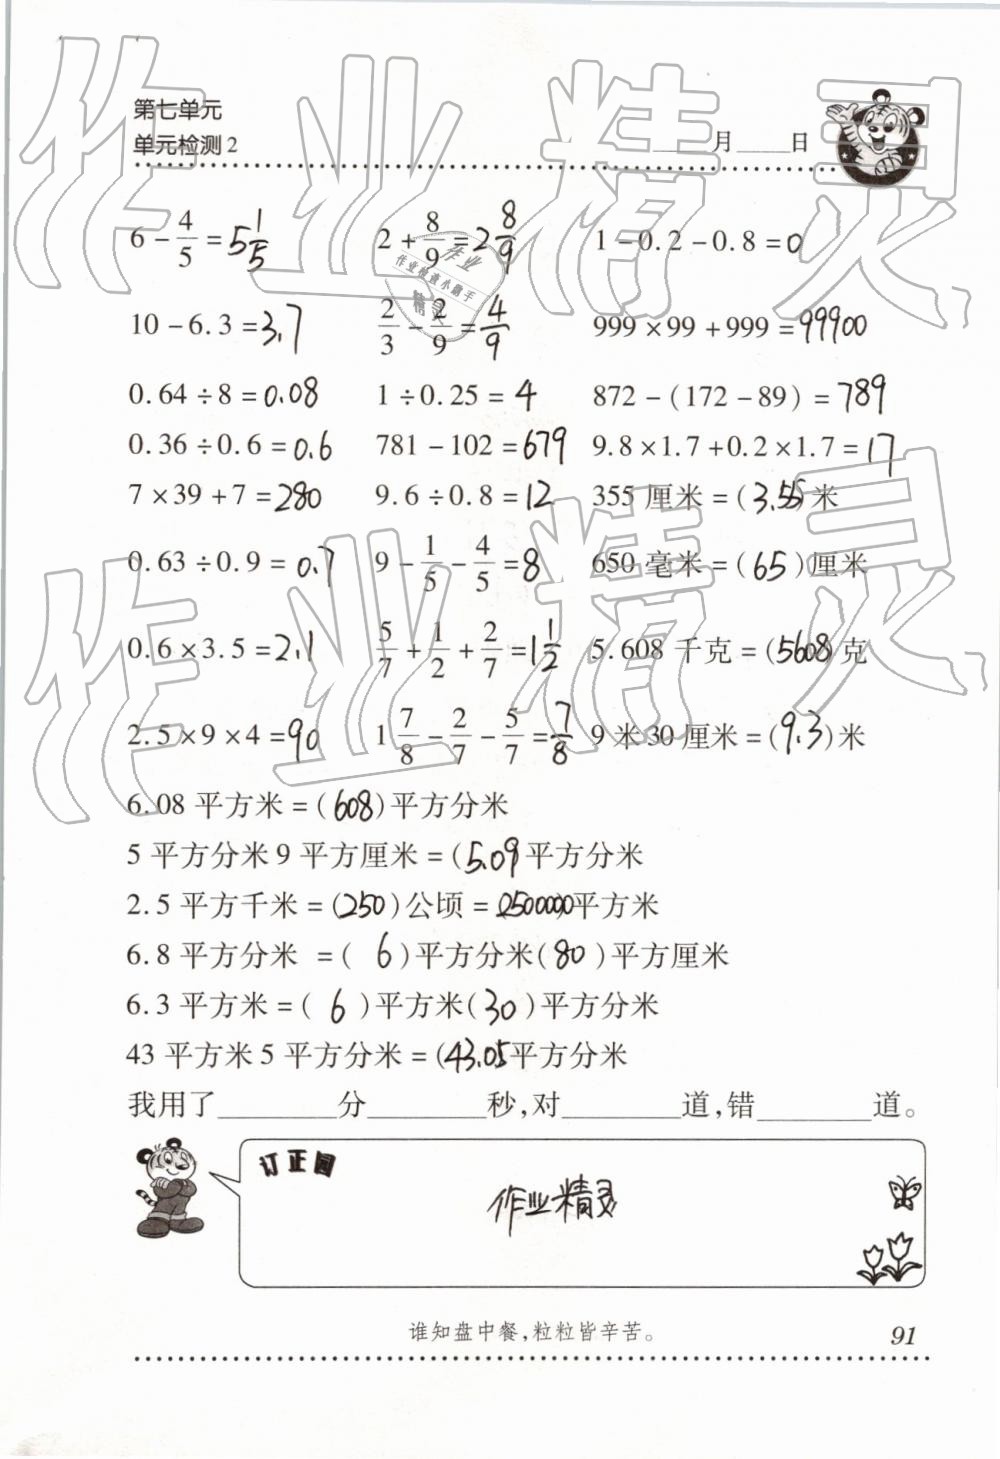 第七单元
单元检测2
月____日
6 - 4/5 = 5 1/5 2 + 8/9 = 2 8/9 1 - 0.2 - 0.8 = 0
10 - 6.3 = 3.7 2/3 - 2/9 = 4/9 999 × 99 + 999 = 99900
0.64 ÷ 8 = 0.08 1 ÷ 0.25 = 4 872 - (172 - 89) = 789
0.36 ÷ 0.6 = 0.6 781 - 102 = 679 9.8 × 1.7 + 0.2 × 1.7 = 17
7 × 39 + 7 = 280 9.6 ÷ 0.8 = 12 355 厘米 = (3.55) 米
0.63 ÷ 0.9 = 0.7 9 - 1/5 - 4/5 = 8 650 毫米 = (65) 厘米
0.6 × 3.5 = 2.1 5/7 + 1/2 + 2/7 = 1 1/2 5.608 千克 = (5608) 克
2.5 × 9 × 4 = 90 1 7/8 - 2/7 - 5/7 = 7/8 9 米 30 厘米 = (9.3) 米
6.08 平方米 = (608) 平方分米
5 平方分米 9 平方厘米 = (5.09 平方分米
2.5 平方千米 = (250) 公顷 = 2500000 平方米
6.8 平方分米 = ( 6 ) 平方分米 ( 80 ) 平方厘米
6.3 平方米 = ( 6 ) 平方米 ( 30 ) 平方分米
43 平方米 5 平方分米 = (43.05 平方分米
我用了________分________秒,对________道,错________道。
订正园
作业精灵
谁知盘中餐,粒粒皆辛苦。
91
作业精灵
作业精灵
作业
作业检查小能手
精灵